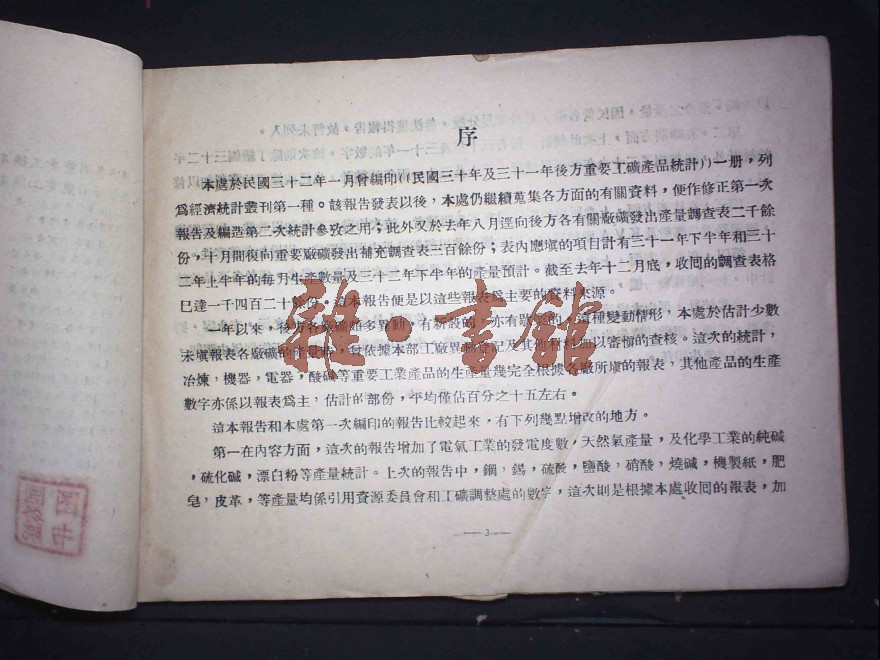 序
本處於民國三十二年一月曾編印((民國三十年及三十一年後方重要工礦產品統計))一册，列
爲經濟統計叢刊第一種。該報告發表以後，本處仍繼續蒐集各方面的有關資料，便作修正第一次
報告及編造第二次統計參攷之用；此外又於去年八月逕向後方各有關廠礦發出產量調查表二千餘
份，十月間復向重要廠礦發出補充調查表三百餘份；表內應塡的項目計有三十一年下半年和三十
二年上半年的每月生產數量及三十二年下半年的產量預計。截至去年十二月底，收回的調查表格
巳達一千四百二十餘份。這本報告便是以這些報表爲主要的資料來源。
一年以來，後方各廠礦頗多異動，有新設的，亦有 這種變動情形，本處於估計少數
未塡報表各廠礦的產量時，曾依據本部工廠異動登記及其他材料加以審愼的查核。這次的統計，
冶煉，機器，電器，酸碱等重要工業產品的生產量幾完全根據各廠所塡的報表，其他產品的生產
數字亦係以報表爲主，估計的部份，平均僅佔百分之十五左右。
這本報告和本處第一次編印的報告比較起來，有下列幾點增改的地方。
第一在內容方面，這次的報告增加了電氣工業的發電度數，天然氣產量，及化學工業的純碱
，硫化碱，漂白粉等產量統計。上次的報告中，鋼，錫，硫酸，鹽酸，硝酸，燒碱，機製紙，肥
皂，皮革，等產量均係引用資源委員會和工礦調整處的數字，這次則是根據本處收回的報表，加
—3—
雜·書館